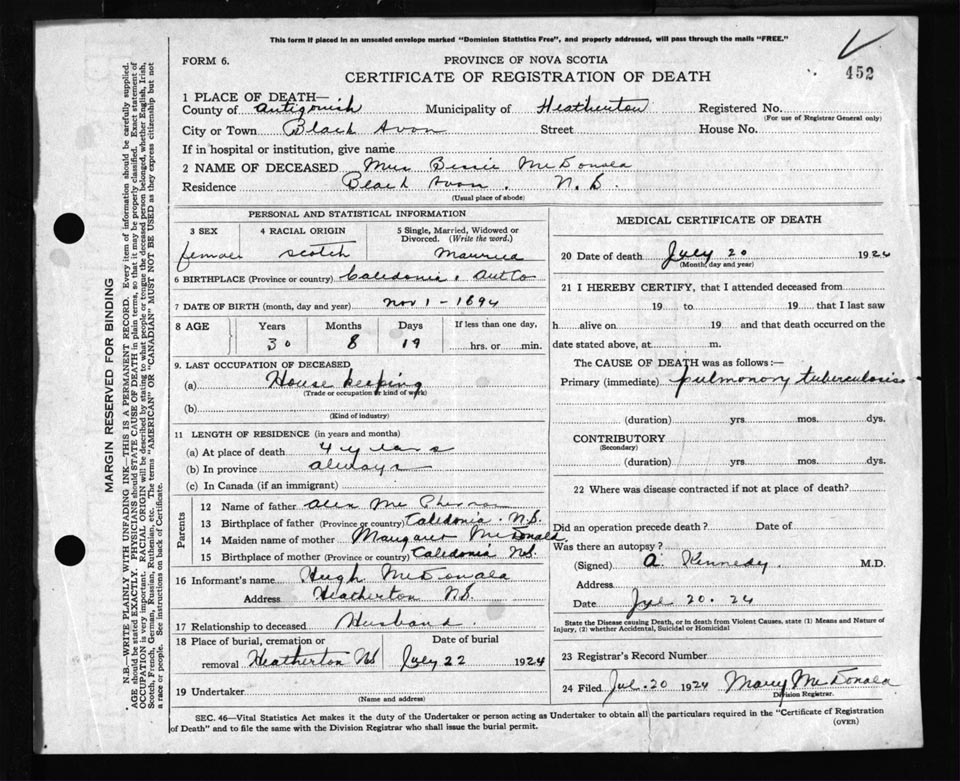 This form if placed in an unsealed envelope marked "Dominion Statistics Free", and properly addressed, will pass through the mails "FREE."
FORM 6.
PROVINCE OF NOVA SCOTIA
CERTIFICATE OF REGISTRATION OF DEATH
452
1 PLACE OF DEATH—
County of Antigonish Municipality of Heatherton Registered No.
(For use of Registrar General only)
City or Town Black Avon Street House No.
If in hospital or institution, give name
2 NAME OF DECEASED Mrs Bessie McDonald
Residence Black Avon. N.S.
(Usual place of abode)
PERSONAL AND STATISTICAL INFORMATION
3 SEX 4 RACIAL ORIGIN 5 Single, Married, Widowed or Divorced. (Write the word.)
female scotch Married
6 BIRTHPLACE (Province or country) Caledonia, Ant Co
7 DATE OF BIRTH (month, day and year) Nov 1 - 1894
8 AGE Years Months Days If less than one day,
30 8 19 hrs. or min.
9. LAST OCCUPATION OF DECEASED
(a) House keeping
(Trade or occupation or kind of work)
(b)
(Kind of industry)
11 LENGTH OF RESIDENCE (in years and months)
(a) At place of death 4 years
(b) In province always
(c) In Canada (if an immigrant)
Parents
12 Name of father Alex McPherson
13 Birthplace of father (Province or country) Caledonia. N.S.
14 Maiden name of mother Margaret McDonald
15 Birthplace of mother (Province or country) Caledonia NS.
16 Informant's name Hugh McDonald
Address Heatherton NS.
17 Relationship to deceased Husband.
18 Place of burial, cremation or removal Heatherton NS Date of burial July 22 1924
19 Undertaker
(Name and address)
MEDICAL CERTIFICATE OF DEATH
20 Date of death July 20 1924
(Month, day and year)
21 I HEREBY CERTIFY, that I attended deceased from
19 to 19 that I last saw
h alive on 19 and that death occurred on the
date stated above, at m.
The CAUSE OF DEATH was as follows:—
Primary (immediate) pulmonory tuberculosis
(duration) yrs. mos. dys.
CONTRIBUTORY
(Secondary)
(duration) yrs. mos. dys.
22 Where was disease contracted if not at place of death?
Did an operation precede death? Date of
Was there an autopsy?
(Signed) A. Kennedy. M.D.
Address
Date 20. 24
State the Disease causing Death, or in death from Violent Causes, state (1) Means and Nature of
Injury, (2) whether Accidental, Suicidal or Homicidal
23 Registrar's Record Number
24 Filed Jul. 20 1924 Mary McDonald
Division Registrar.
SEC. 46—Vital Statistics Act makes it the duty of the Undertaker or person acting as Undertaker to obtain all the particulars required in the "Certificate of Registration
of Death" and to file the same with the Division Registrar who shall issue the burial permit.
(OVER)
MARGIN RESERVED FOR BINDING
N.B.—WRITE PLAINLY WITH UNFADING INK—THIS IS A PERMANENT RECORD. Every item of information should be carefully supplied.
AGE should be stated EXACTLY. PHYSICIANS should STATE CAUSE OF DEATH in plain terms, so that it may be properly classified. Exact statement of
OCCUPATION is very important. RACIAL ORIGIN will be described by stating to what people or tongue the deceased person belonged, whether English, Irish,
Scotch, French, German, Russian, Ruthenian, etc. The terms "AMERICAN" OR "CANADIAN" MUST NOT BE USED as they express citizenship but not
a race or people. See instructions on back of Certificate.